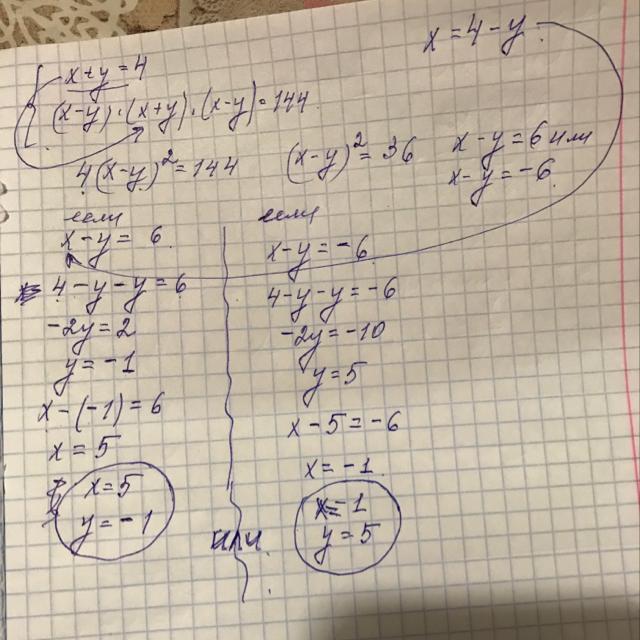 x = 4 - y
x + y = 4
(x-y) · (x+y) · (x-y) = 144
4(x-y)² = 144
(x-y)² = 36
x - y = 6 или
x - y = -6
если
x - y = 6
4 - y - y = 6
-2y = 2
y = -1
x - (-1) = 6
x = 5
x = 5
y = -1
или
если
x - y = -6
4 - y - y = -6
-2y = -10
y = 5
x - 5 = -6
x = -1
x = -1
y = 5